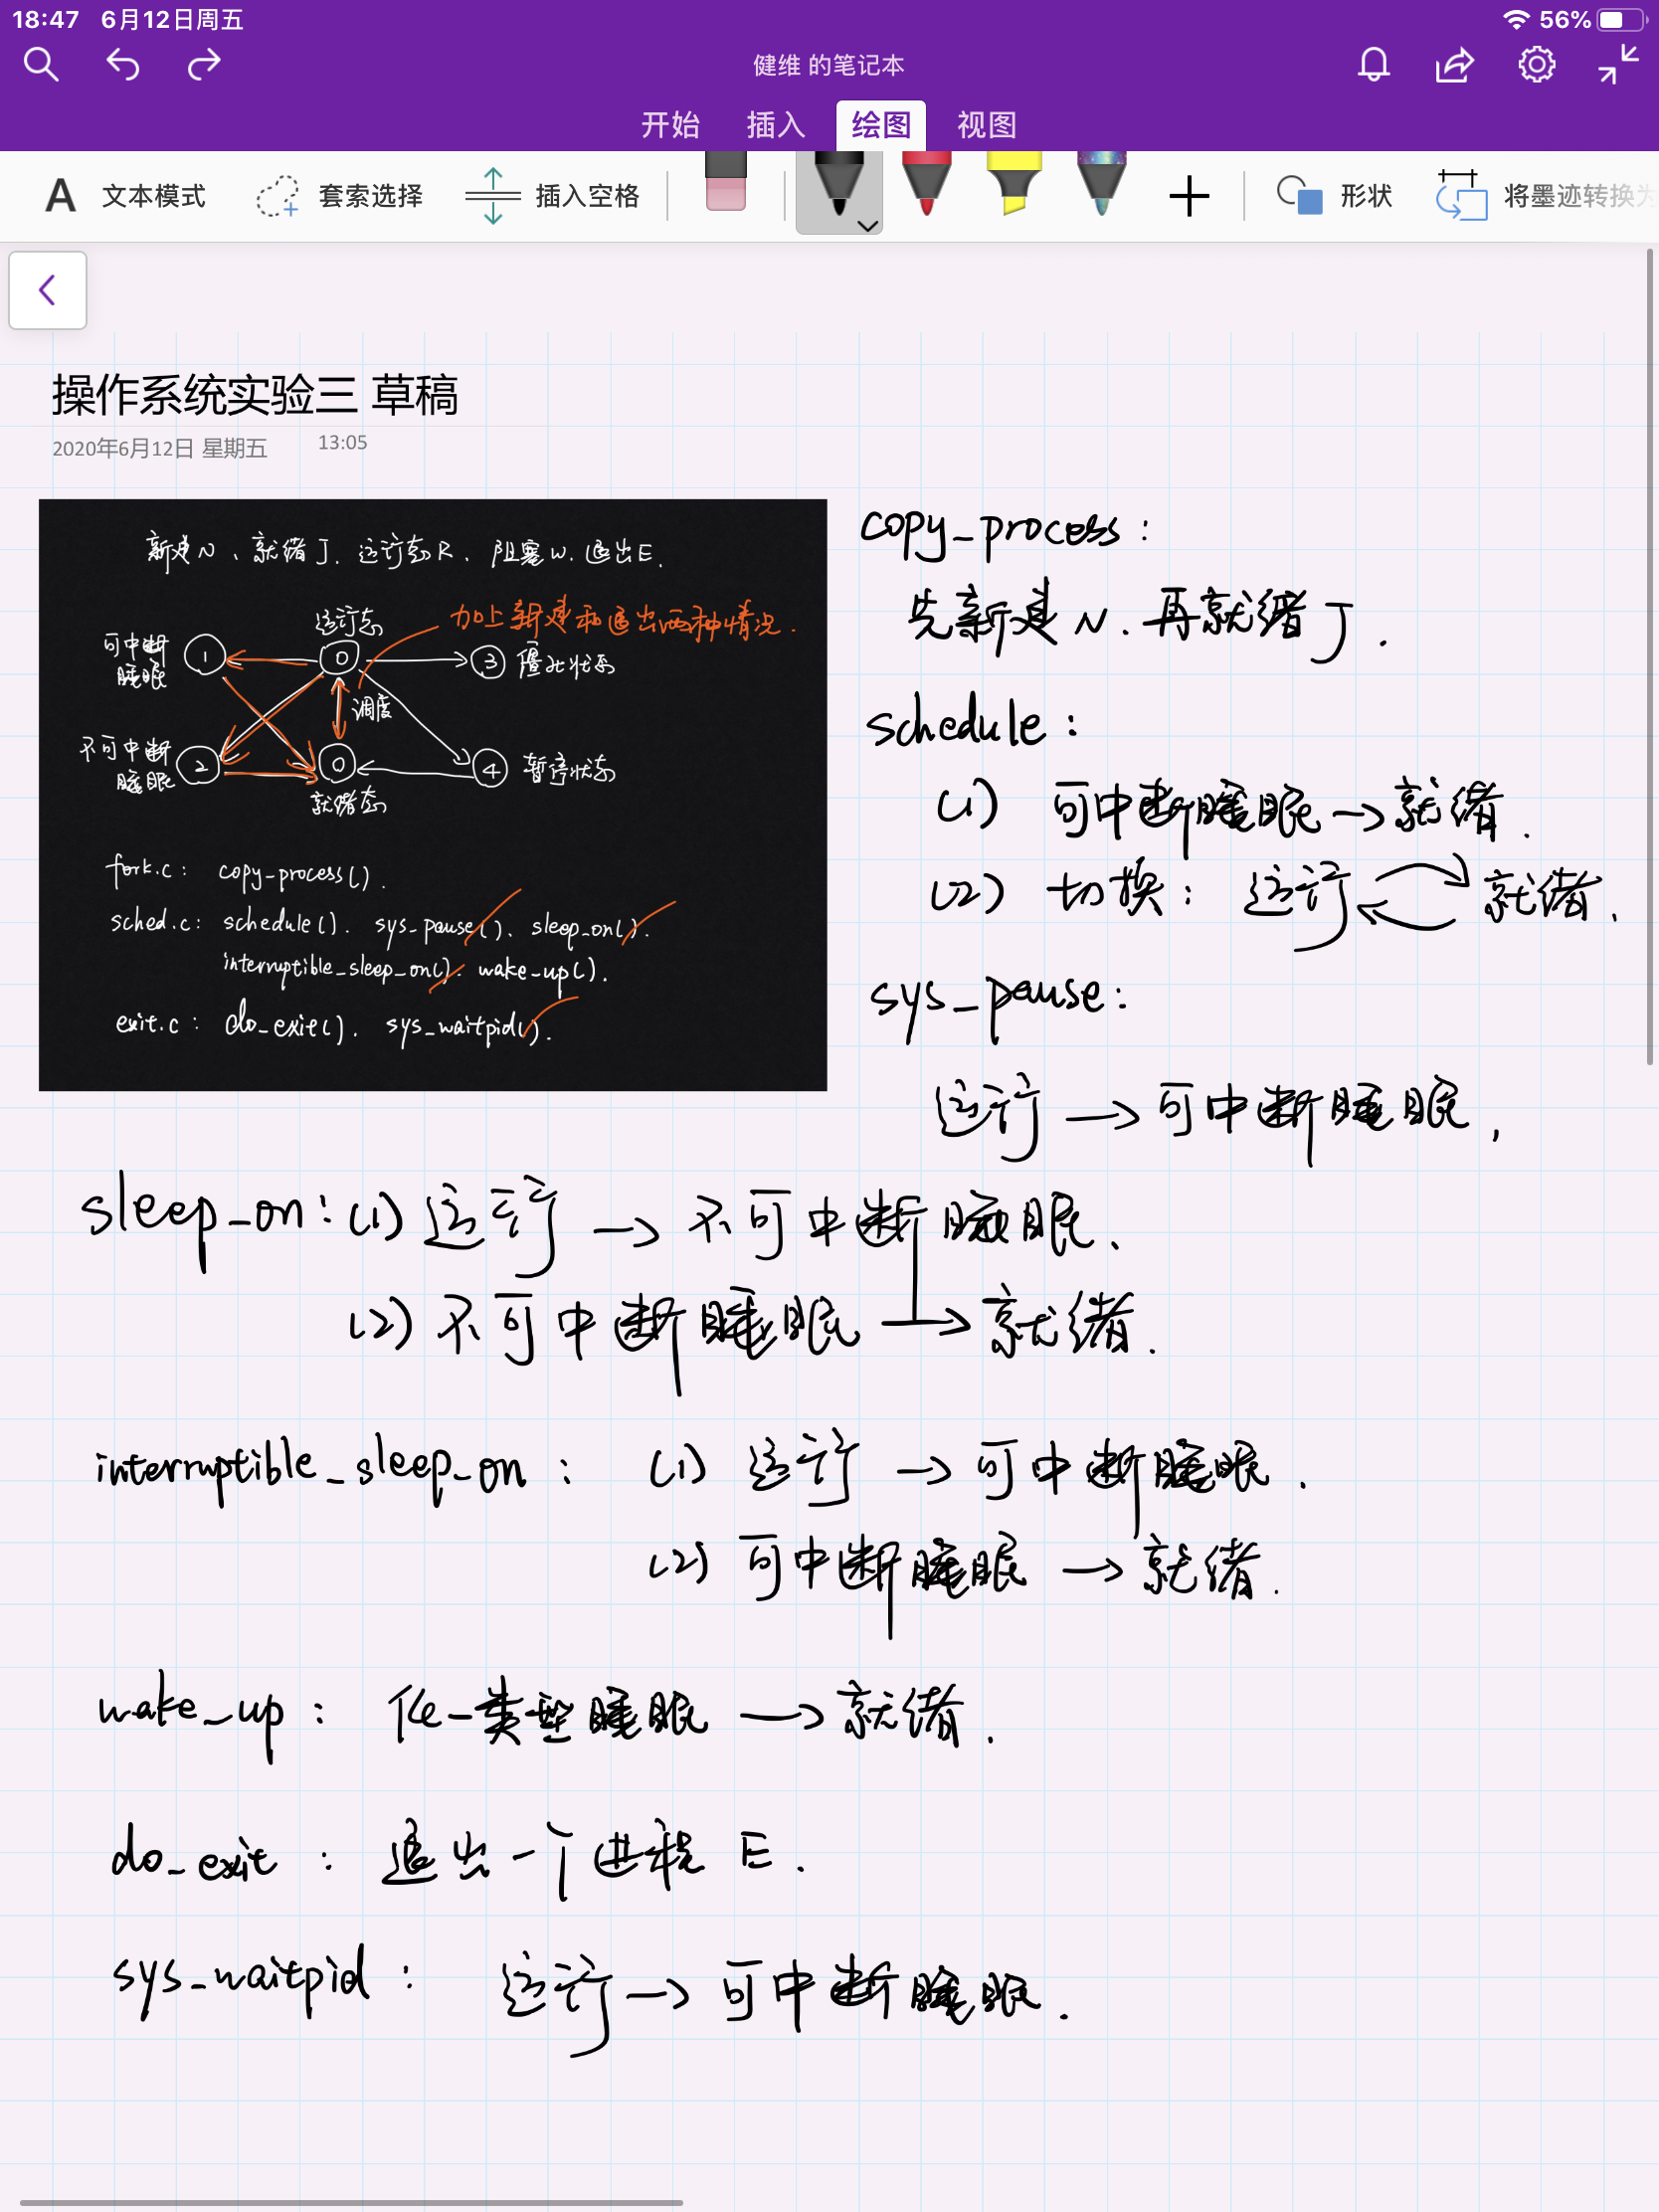 18:47 6月12日周五 56%
健维 的笔记本
开始 插入 绘图 视图
A 文本模式 套索选择 插入空格 形状 将墨迹转换为
操作系统实验三 草稿
2020年6月12日 星期五 13:05
新建N、就绪J、运行态R、阻塞W、退出E.
加上新建和退出两种情况.
运行态
可中断睡眠 1 0 3 僵死状态
调度
不可中断睡眠 2 0 4 暂停状态
就绪态
fork.c: copy_process().
sched.c: schedule(). sys_pause()、sleep_on().
interruptible_sleep_on(). wake_up().
exit.c: do_exit(). sys_waitpid().
copy_process:
先新建N、再就绪J.
schedule:
(1) 可中断睡眠→就绪.
(2) 切换: 运行 就绪.
sys_pause:
运行→可中断睡眠,
sleep_on: (1) 运行→不可中断睡眠、
(2) 不可中断睡眠→就绪.
interruptible_sleep_on: (1) 运行→可中断睡眠.
(2) 可中断睡眠→就绪.
wake_up: 任一类型睡眠→就绪.
do_exit: 退出一个进程E.
sys_waitpid: 运行→可中断睡眠.